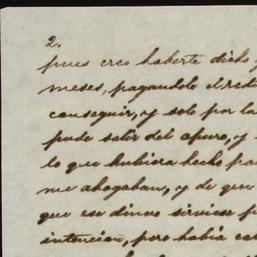 2.
pues creo haberte dicho
meses, pagandole el redi
conseguir, y solo por la
pude salir del apuro, y
lo que hubiera hecho pa
me ahogaban, y de que
que ese dinero sirviese p
intencion, pero habia